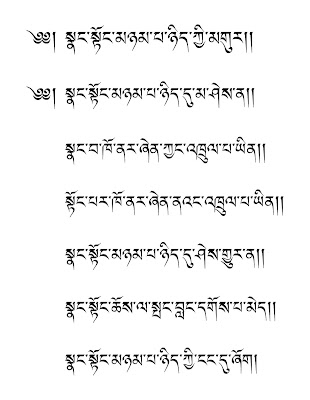 ༄༅། སྣང་སྟོང་མཉམ་པ་ཉིད་ཀྱི་མགུར།།
༄༅། སྣང་སྟོང་མཉམ་པ་ཉིད་དུ་མ་ཤེས་ན།།
སྣང་བ་ཁོ་ནར་ཞེན་ཀྱང་འཁྲུལ་པ་ཡིན།།
སྟོང་པར་ཁོ་ནར་ཞེན་ནའང་འཁྲུལ་པ་ཡིན།།
སྣང་སྟོང་མཉམ་པ་ཉིད་དུ་ཤེས་གྱུར་ན།།
སྣང་སྟོང་ཆོས་ལ་སྤང་བླང་དགོས་པ་མེད།།
སྣང་སྟོང་མཉམ་པ་ཉིད་ཀྱི་ངང་དུ་ཞོག།